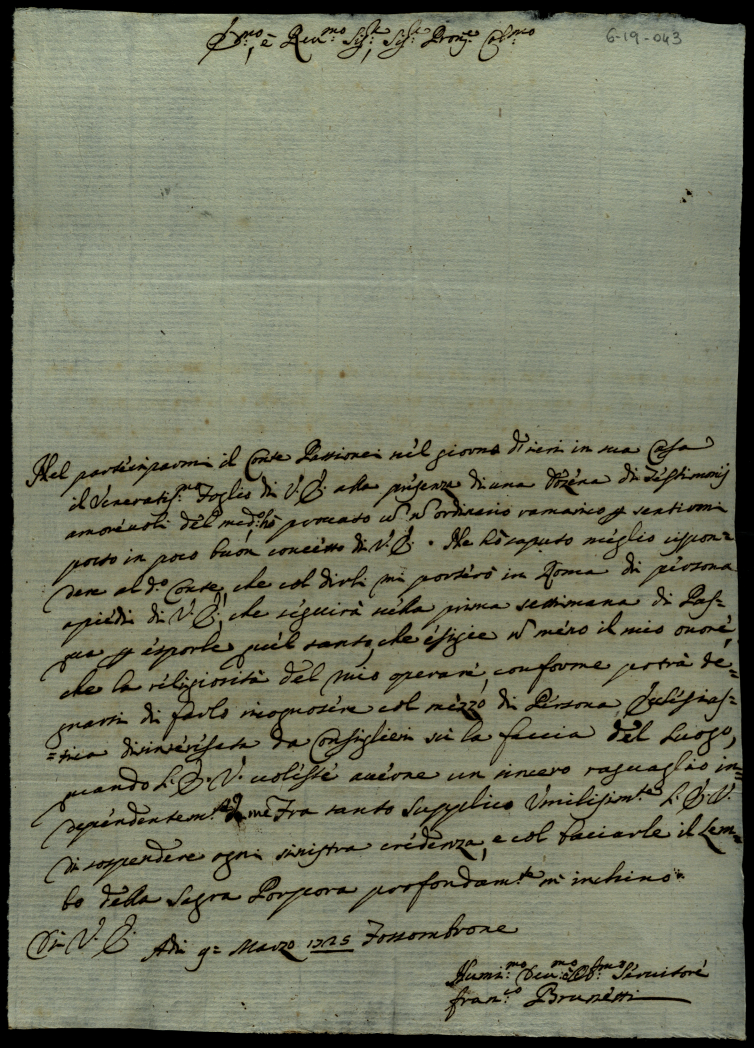 E.mo, e Rev.mo Sig.re, Sig.re Pron.e Col.mo
6-19-043
Nel participarmi il Conte Passionei nel giorno di ieri in sua Casa
il Veneratis.mo Foglio di V.E. alla presenza di una dozena di Testimonij
amorevoli del med.o hò provato un n̄ ordinario ramarico p sentirmi
posto in poco buon concetto di V.E. Ne hò saputo meglio rispon=
dere al d.o Conte, che col dirli mi porterò in Roma di persona
a piedi di V.E., che seguirà nella prima settimana di Pas=
qua p esporle quel tanto, che esigge n̄ meno il mio onore,
che la religiosità del mio operare, conforme potrà de=
gnarsi di farlo riconoscere col mezzo di Persona Eclesias=
=tica disinteressata da Consiglieri sù la faccia del Luogo,
quando l'E.V. volesse averne un sincero raguaglio in=
dependentem.te da me. Fra tanto supplico Umilissim.te l'E.V.
di sospendere ogni sinistra credenza, e col baciarle il Lem=
bo della Sagra Porpora profondam.te m'inchino
Di V.E. Adì 9= Marzo 1725 Fossombrone
Humil.mo Dev.mo Obb.mo Servitore
Fran.co Brunetti